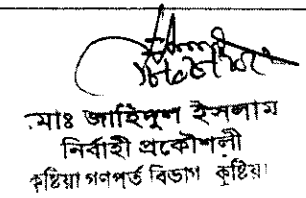 মোঃ জাহিদুল ইসলাম
নির্বাহী প্রকৌশলী
কুষ্টিয়া গণপূর্ত বিভাগ কুষ্টিয়া।